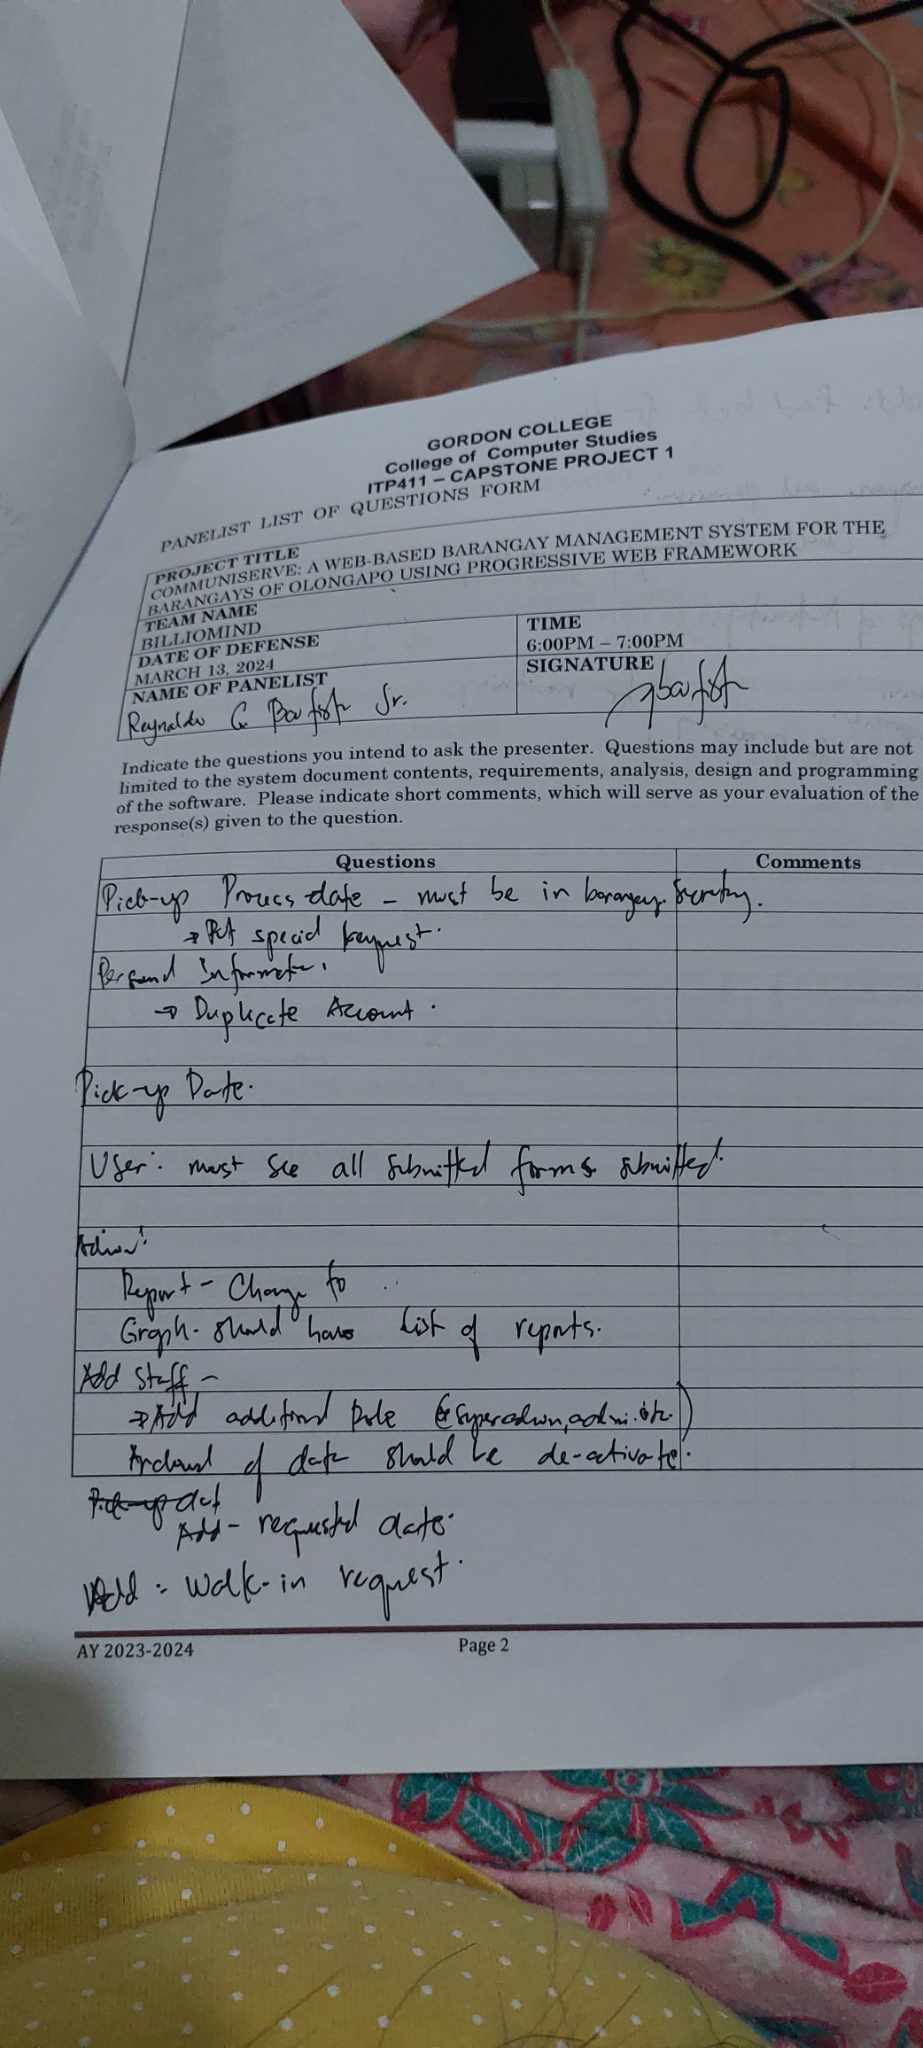 GORDON COLLEGE
College of Computer Studies
ITP411 – CAPSTONE PROJECT 1
PANELIST LIST OF QUESTIONS FORM
PROJECT TITLE
COMMUNISERVE: A WEB-BASED BARANGAY MANAGEMENT SYSTEM FOR THE
BARANGAYS OF OLONGAPO USING PROGRESSIVE WEB FRAMEWORK
TEAM NAME
BILLIOMIND
DATE OF DEFENSE
MARCH 13, 2024
TIME
6:00PM – 7:00PM
NAME OF PANELIST
Reynaldo G. Jr.
SIGNATURE
Indicate the questions you intend to ask the presenter. Questions may include but are not
limited to the system document contents, requirements, analysis, design and programming
of the software. Please indicate short comments, which will serve as your evaluation of the
response(s) given to the question.
Questions Comments
Pick-up Process date – must be in barangay secretary.
→ Put special request.
Personal Information.
→ Duplicate Account.
Pick-up Date.
User: must see all submitted forms submitted.
Admin:
Report – Change to ..
Graph – should have list of reports.
Add Staff –
→ Add additional Role (superadmin, admin. etc.)
of date should be de-activate.
Pick-up
Add – requested date.
Add: Walk-in request.
AY 2023-2024 Page 2